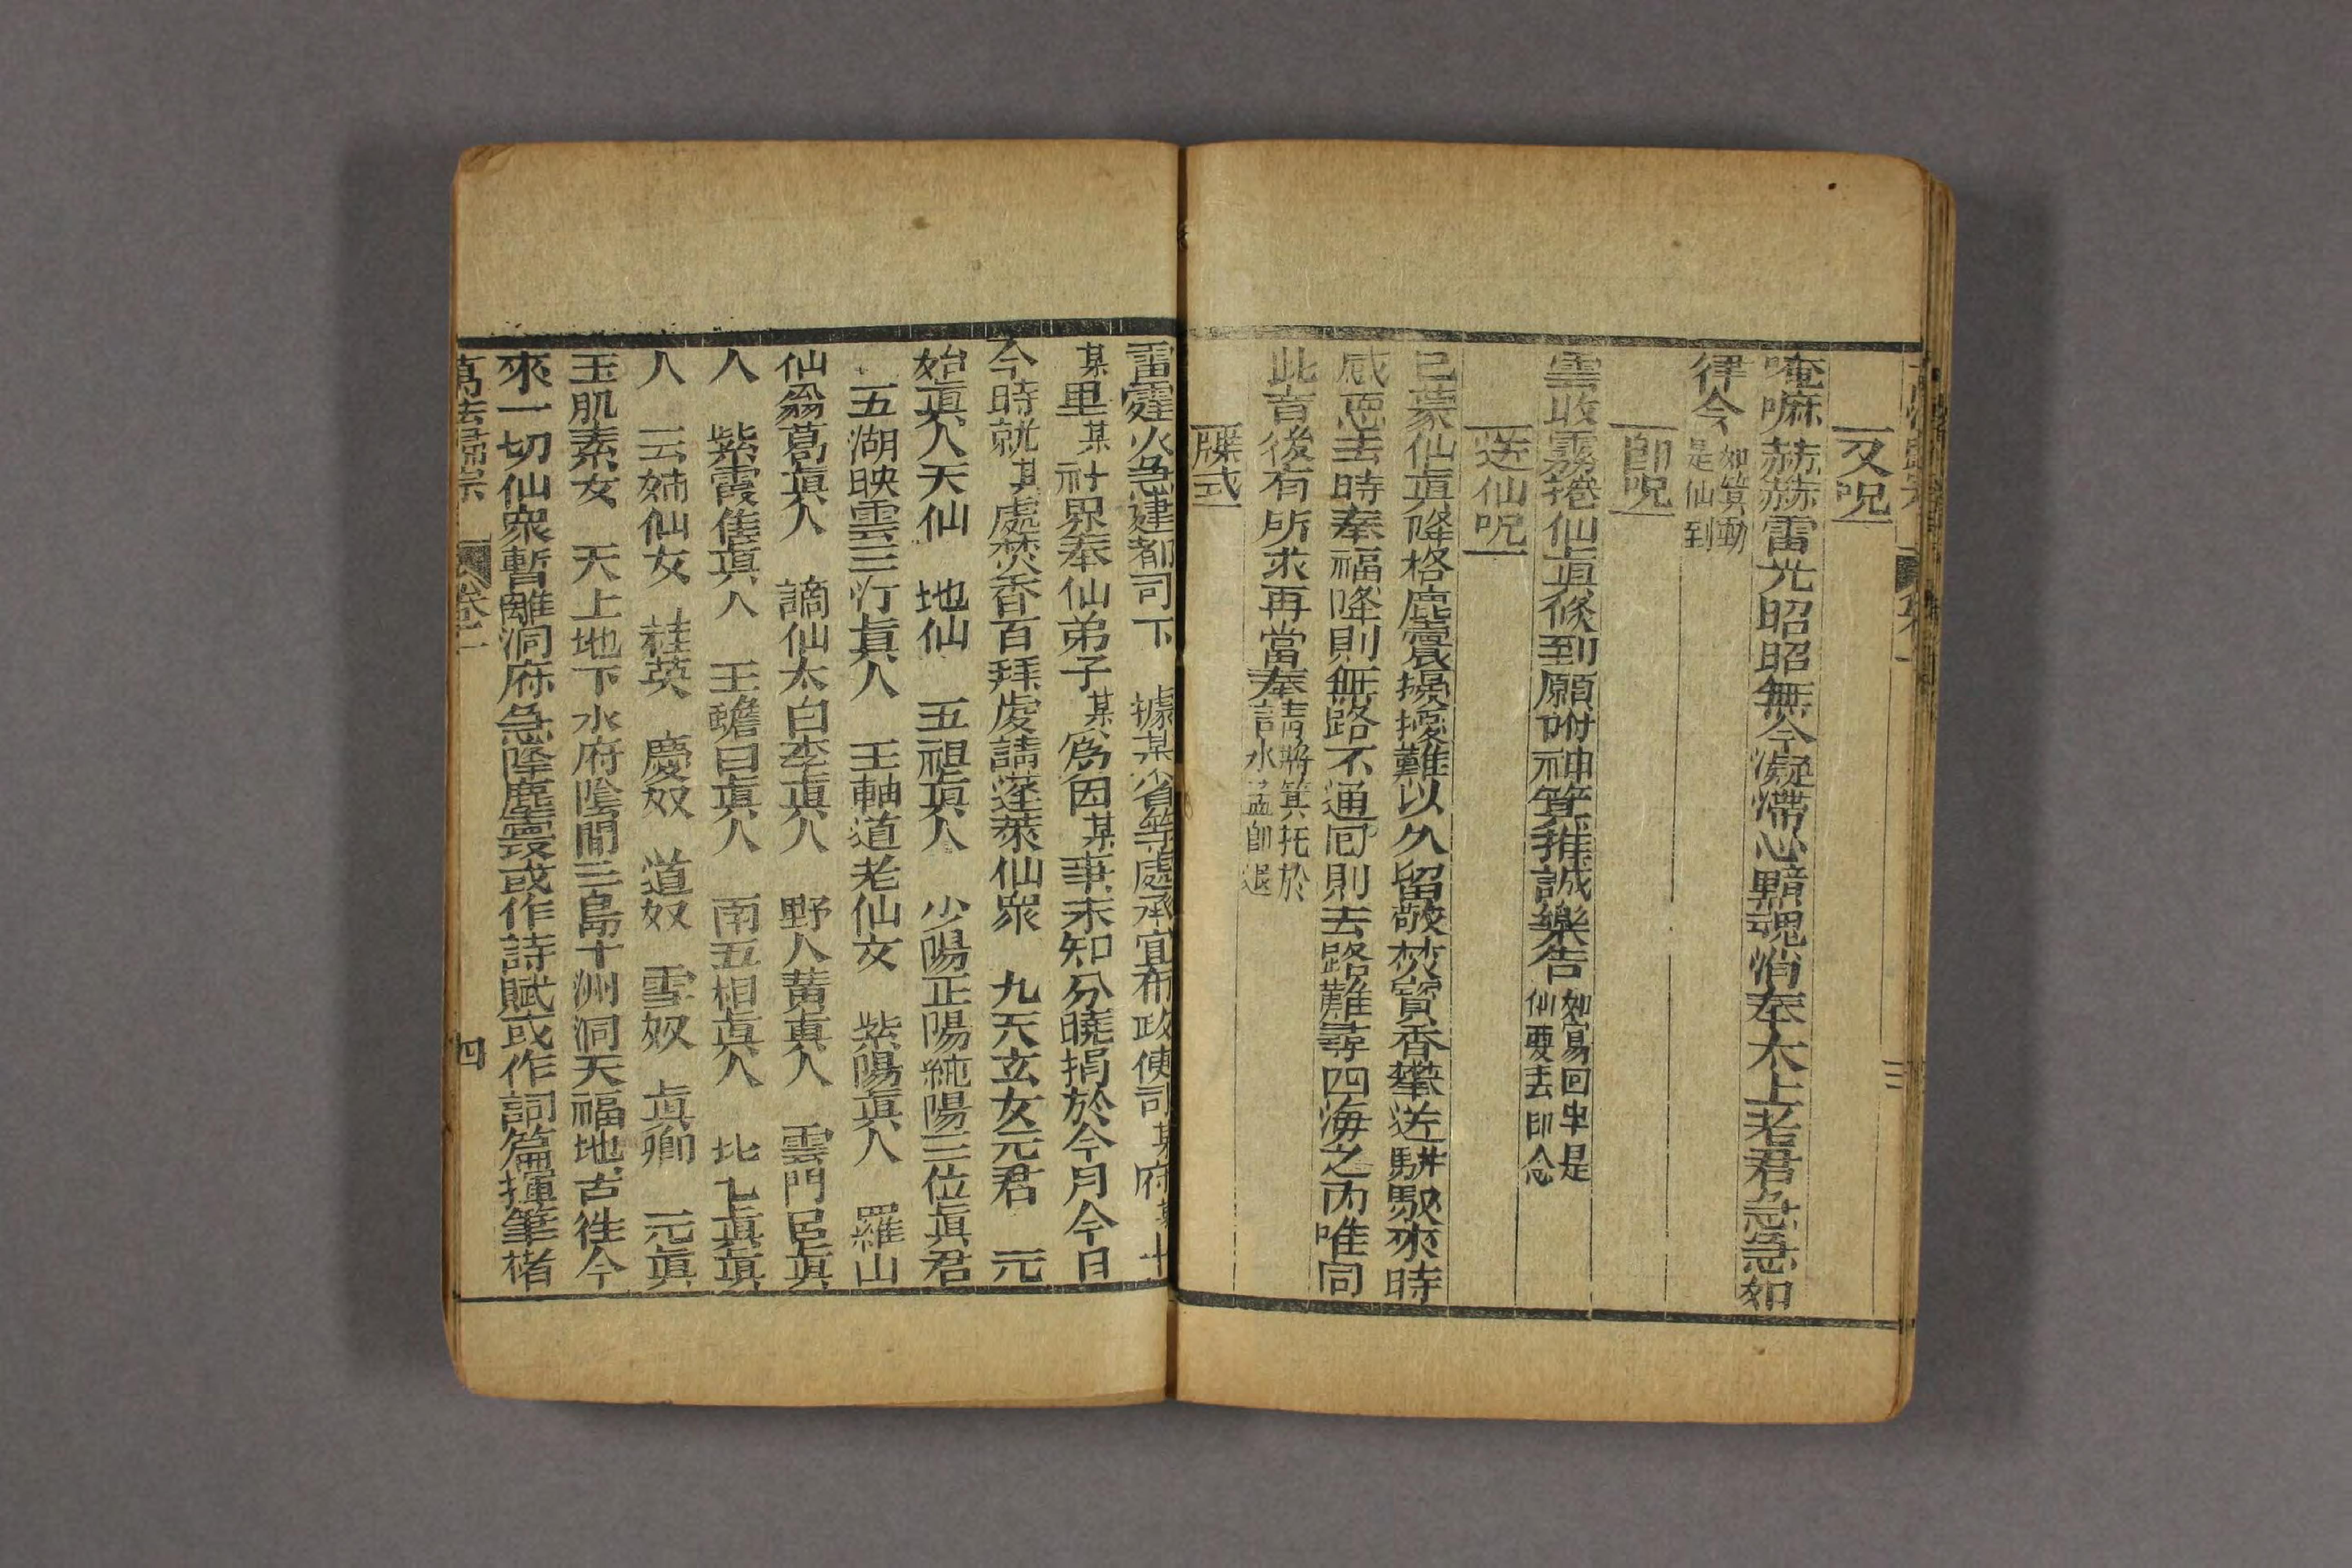 又呪
唵嘛赫赫雷光昭昭無令凝滯心黯魂悄奉太上老君急急如
律令如箕動是仙到
卽呪
雲收霧捲仙眞倐到願附神箕推誠樂告如寫回字是仙要去卽念
送仙呪
已蒙仙眞降格塵寰擾擾難以久留敬焚寳香攀送駢馭來時
感恩去時奉福降則無路不通囘則去路難尋四海之內唯同
此音後有所求再當奉請將箕托於水盂卽退
牒式
雷霆火急建都司下 據某省等處承宣布政使司某府某
某里某社界奉仙弟子某爲因某事未知分曉捐於今月今日
今時就某處焚香百拜虔請蓬萊仙眾 九天玄女元君 元
始眞人天仙 地仙 五祖眞人 少陽正陽純陽三位眞君
五湖映雲三汀眞人 王軸道老仙女 紫陽眞人 羅山
仙翁葛眞人 謫仙太白李眞人 野人黃眞人 雲門邑眞
人 紫霞隹眞人 王蟾日眞人 南五相眞人 北七上眞眞
人 云姉仙女 桂英 慶奴 道奴 雪奴 眞卿 元眞
玉肌素女 天上地下水府陰間三島十洲洞天福地古徃今
來一切仙眾暫離洞府急降塵寰或作詩賦或作詞篇揮筆楮
萬法歸宗 卷二 四